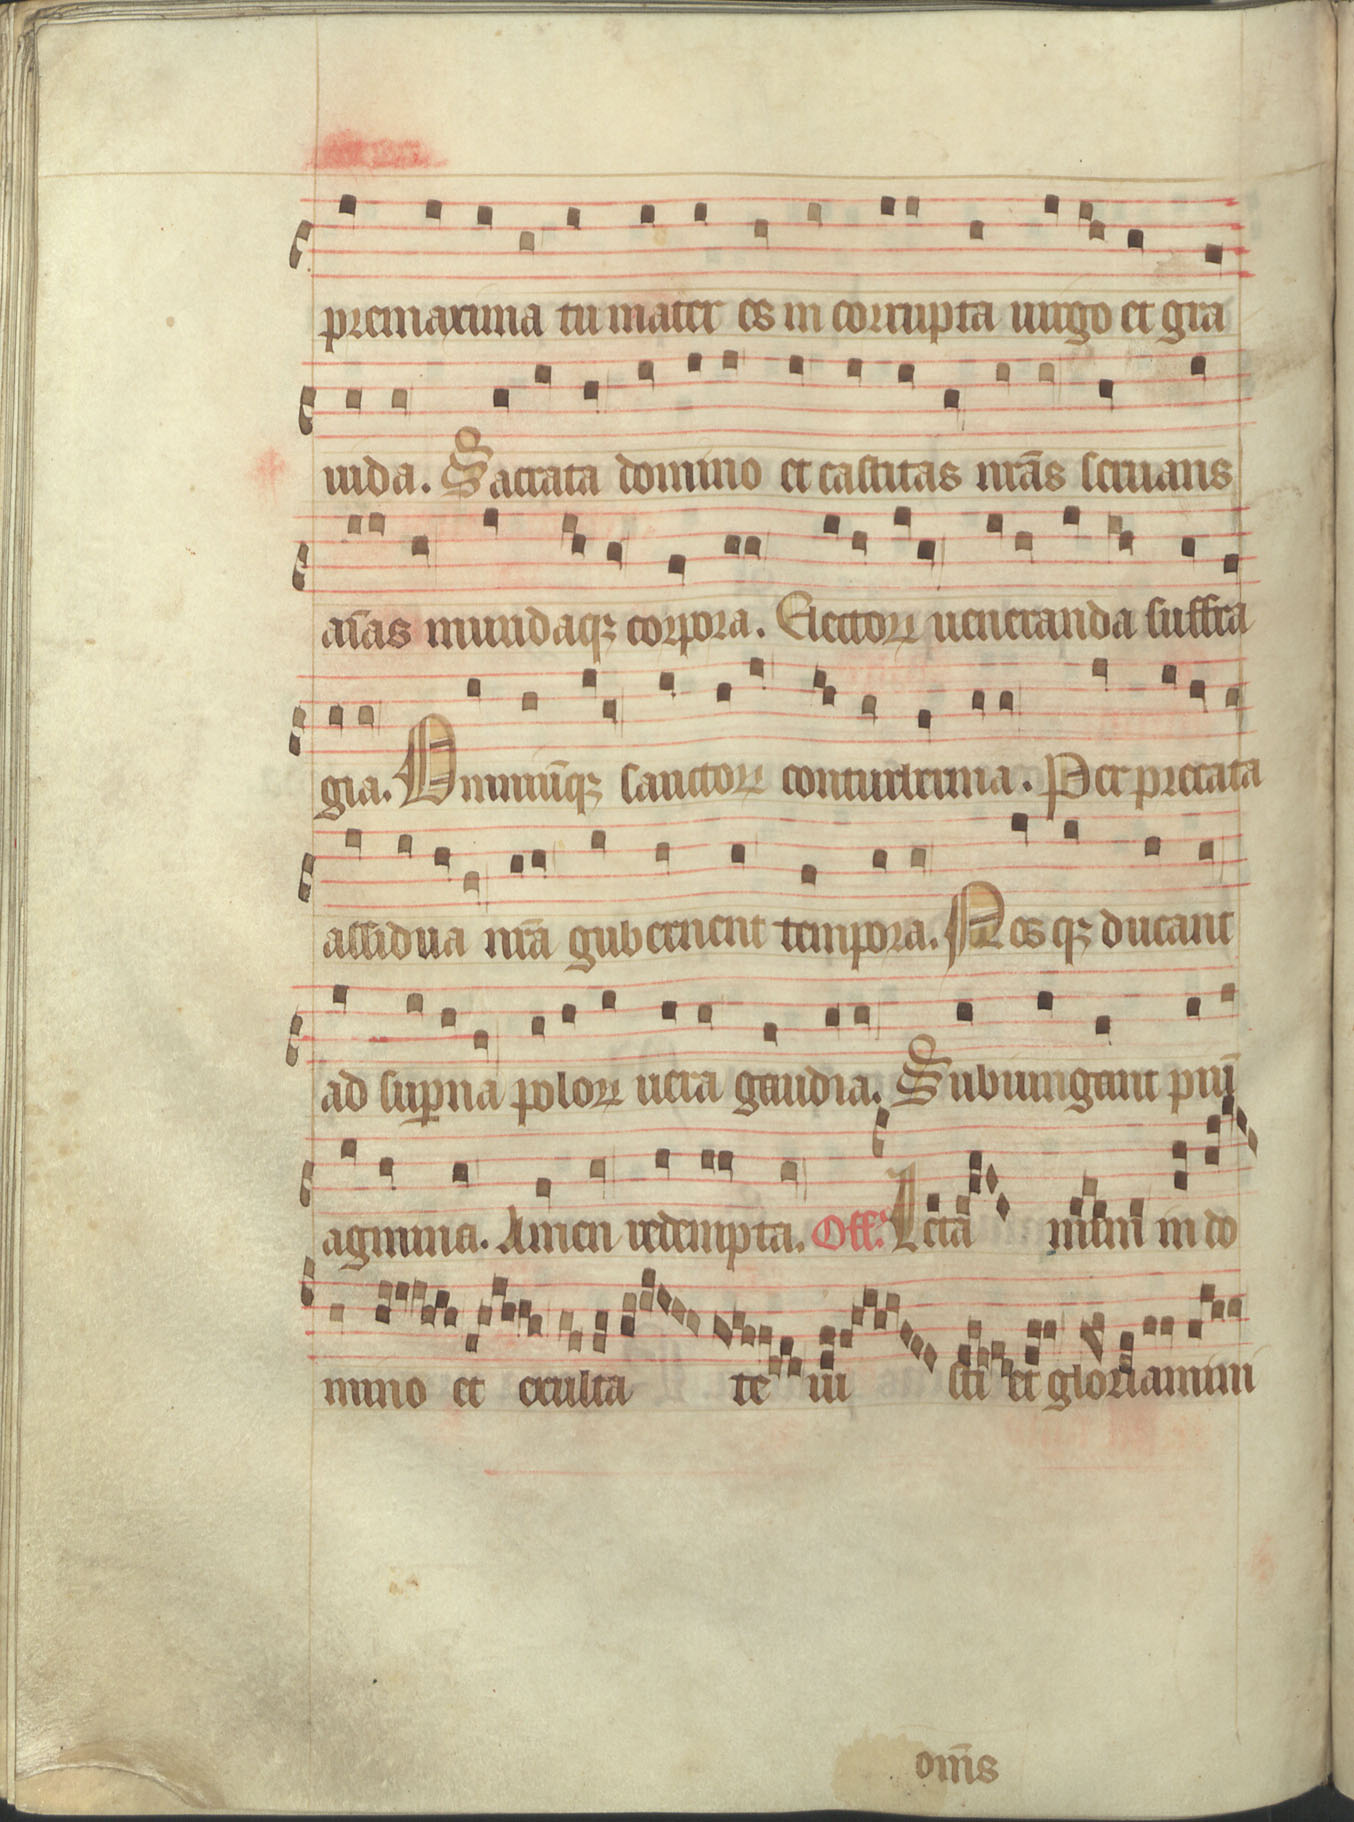 premaxima tu mater es in corrupta uirgo et gra
uida. Sacrata domino et castitas nrās seruans
aīas mundaqꝫ corpora. Electoꝝ ueneranda suffra
gia. Omniūqꝫ sanctoꝝ contubernia. Per precata
assidua nrā gubernent tempora. Nos qꝫ ducant
ad suꝑna poloꝝ uera gaudia. Subiungant piū
agmina. Amen redempta. Off. Leta mini in do
mino et exulta te iu sti et gloriamini
om̄s